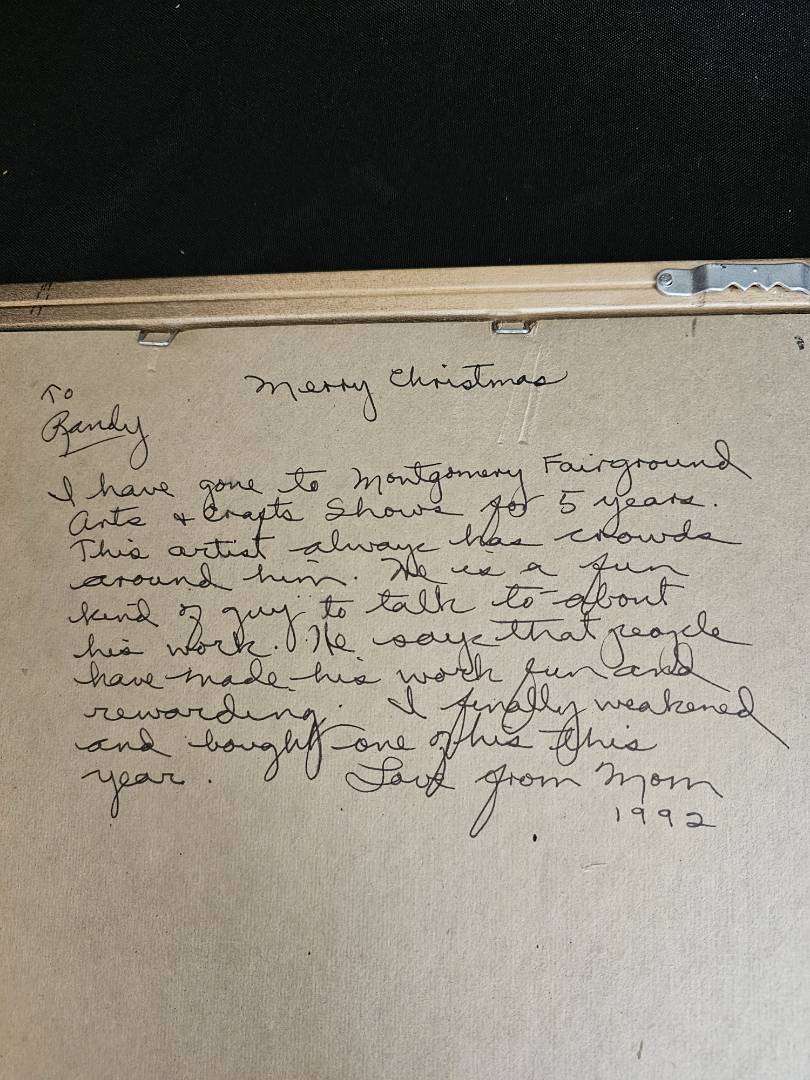 Merry Christmas
To
Randy
I have gone to Montgomery Fairground
Arts & Crafts Shows for 5 years.
This artist always has crowds
around him. He is a fun
kind of guy to talk to about
his work. He says that people
have made his work fun and
rewarding. I finally weakened
and bought one of his this
year. Love from Mom
1992